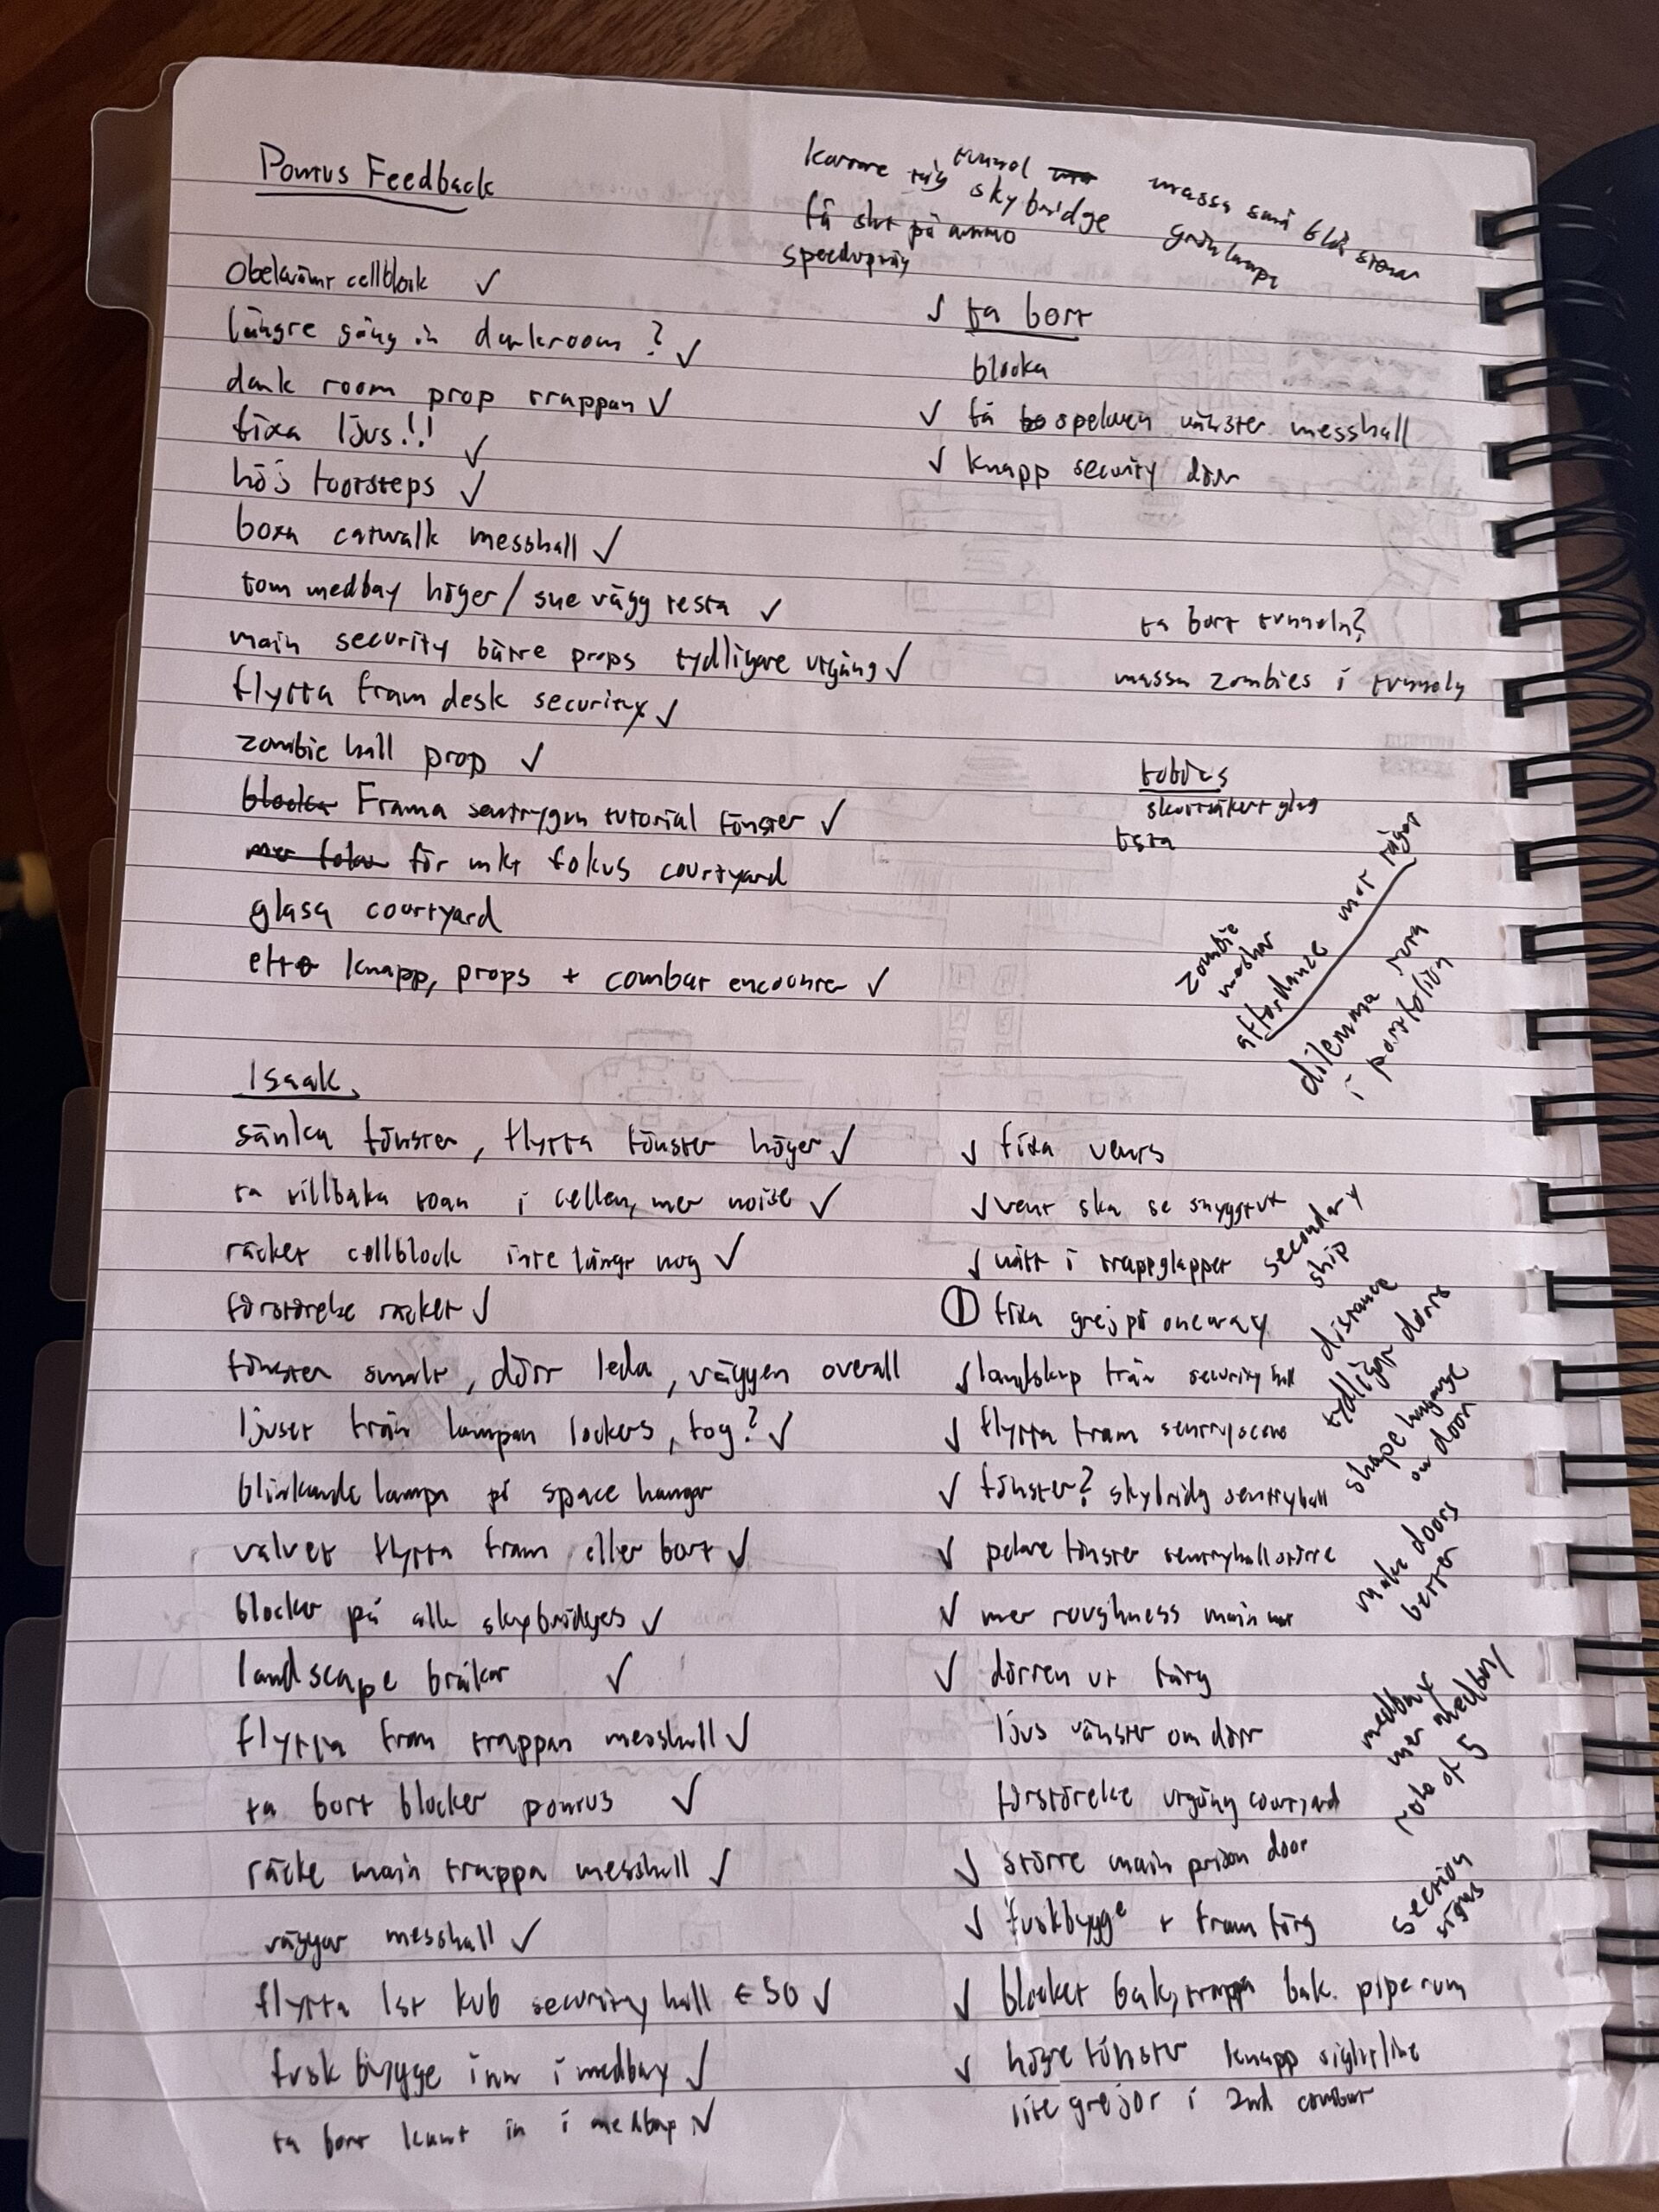 Pontus Feedback
tunnel
skybridge
få slut på ammo
massa små blå stenar
obekvämt cellblock ✓
längre gång in darkroom? ✓
dark room prop trappan ✓
fixa ljus!! ✓
höj footsteps ✓
boxa catwalk messhall ✓
tom medbay höger / sne vägg testa ✓
main security bättre props tydligare utgång ✓
flytta fram desk security ✓
zombie hall prop ✓
blocka Frama sentrygun tutorial fönster ✓
för mkt fokus courtyard
glasa courtyard
knapp, props + combat encounter ✓
✓ ta bort
blocka
✓ få spelaren vänster messhall
✓ knapp security dörr
ta bort tunneln?
massa zombies i tunneln
tobias
skottsäkert glas
testa
zombie
affordance mot
dilemma
i portfolion
Isaak
sänka fönster, flytta fönster höger ✓
ta tillbaka toan i cellen, mer noise ✓
räcket cellblock inte långt nog ✓
förstoreke räcket ✓
fönster smalt, dörr leda, väggen overall
ljuset från lampan lockers, tog? ✓
blinkande lampa på space hangar
valvet flytta fram eller bort ✓
blocker på alla skybridges ✓
landscape bråkar ✓
flytta fram trappan messhall ✓
ta bort blocker pontus ✓
räcke main trappa messhall ✓
väggar messhall ✓
flytta 1st kub security hall ← 50 ✓
fuskbygge inn i medbay ✓
ta bort kant in i medbay ✓
✓ fixa vents
✓ vent ska se snyggt ut
✓ nått i trappglappet
① fixa grej på oneway
✓ landskap från security hall
✓ flytta fram sentryscene
✓ fönster? skybridg sentryhall
✓ pelare fönster sentryhall större
✓ mer roughness main
✓ dörren ut färg
ljus vänster om dörr
förstoreke utgång courtyard
✓ större main prison door
✓ fuskbygge + fram färg
✓ blocket bak, trappa bak. piperum
✓ högre fönster knapp sightline
lite grejor i 2nd combat
secondary
ship
distance
tydligare doors
shape language
on door
make doors
better
medbay
mer medbay
rule of 5
section
signs